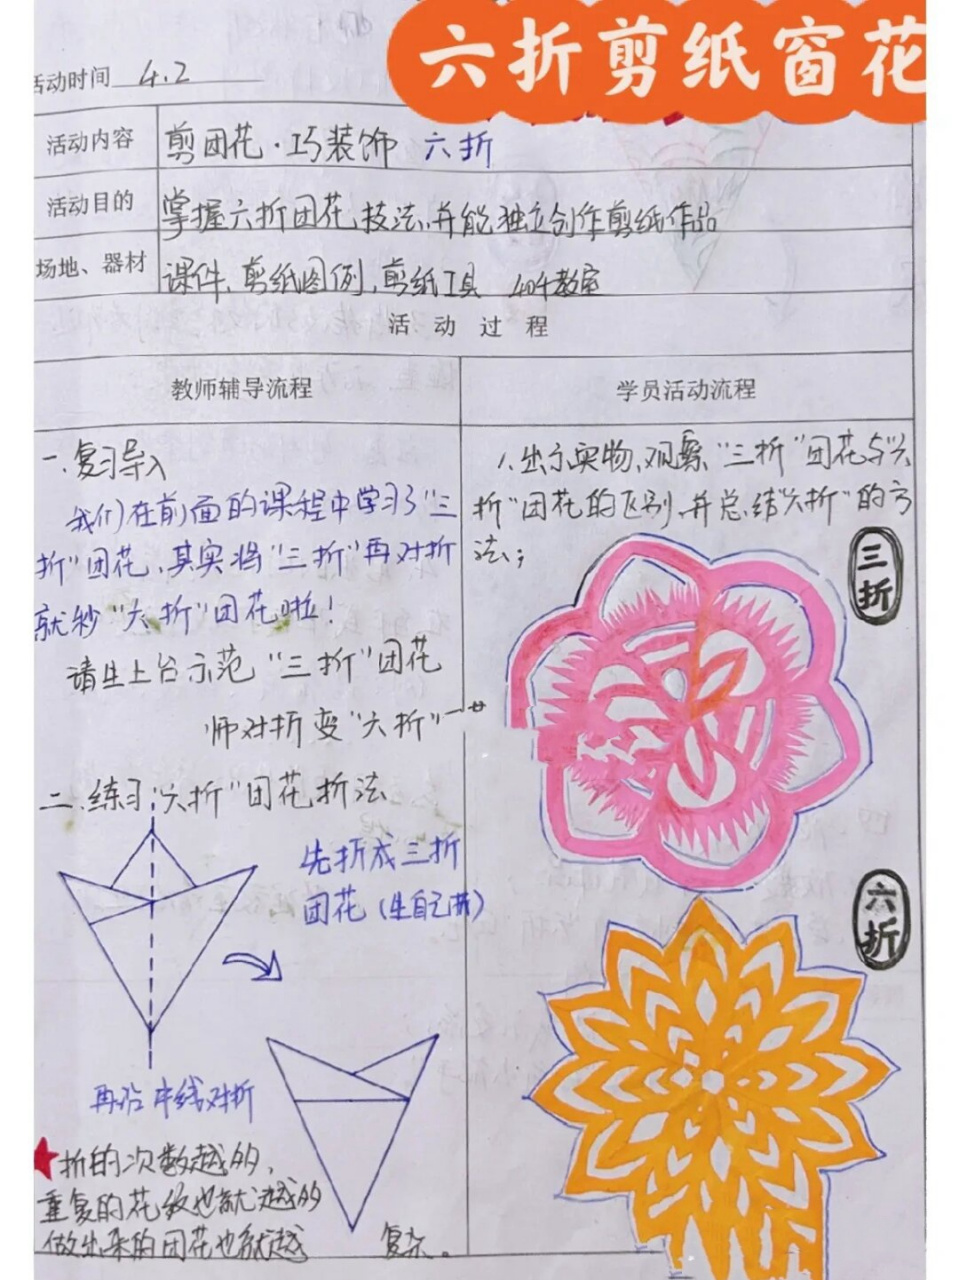 六折剪纸窗花
活动时间 4.2
活动内容 剪团花·巧装饰 六折
活动目的 掌握六折团花技法,并能独立创作剪纸作品
场地、器材 课件、剪纸图例,剪纸工具 404教室
活 动 过 程
教师辅导流程
学员活动流程
一.复习导入
我们在前面的课程中学习了"三
折"团花,其实将"三折"再对折
就秒"六折"团花啦!
请生上台示范"三折"团花
师对折变"六折"
二.练习"六折"团花折法
先折成三折
团花(生自己折)
再沿中线对折
折的次数越的,
重复的花纹也就越的
做出来的团花也就越 复杂。
1.出示实物,观察"三折"团花与"六
折"团花的区别,并总结"六折"的方
法;
三折
六折